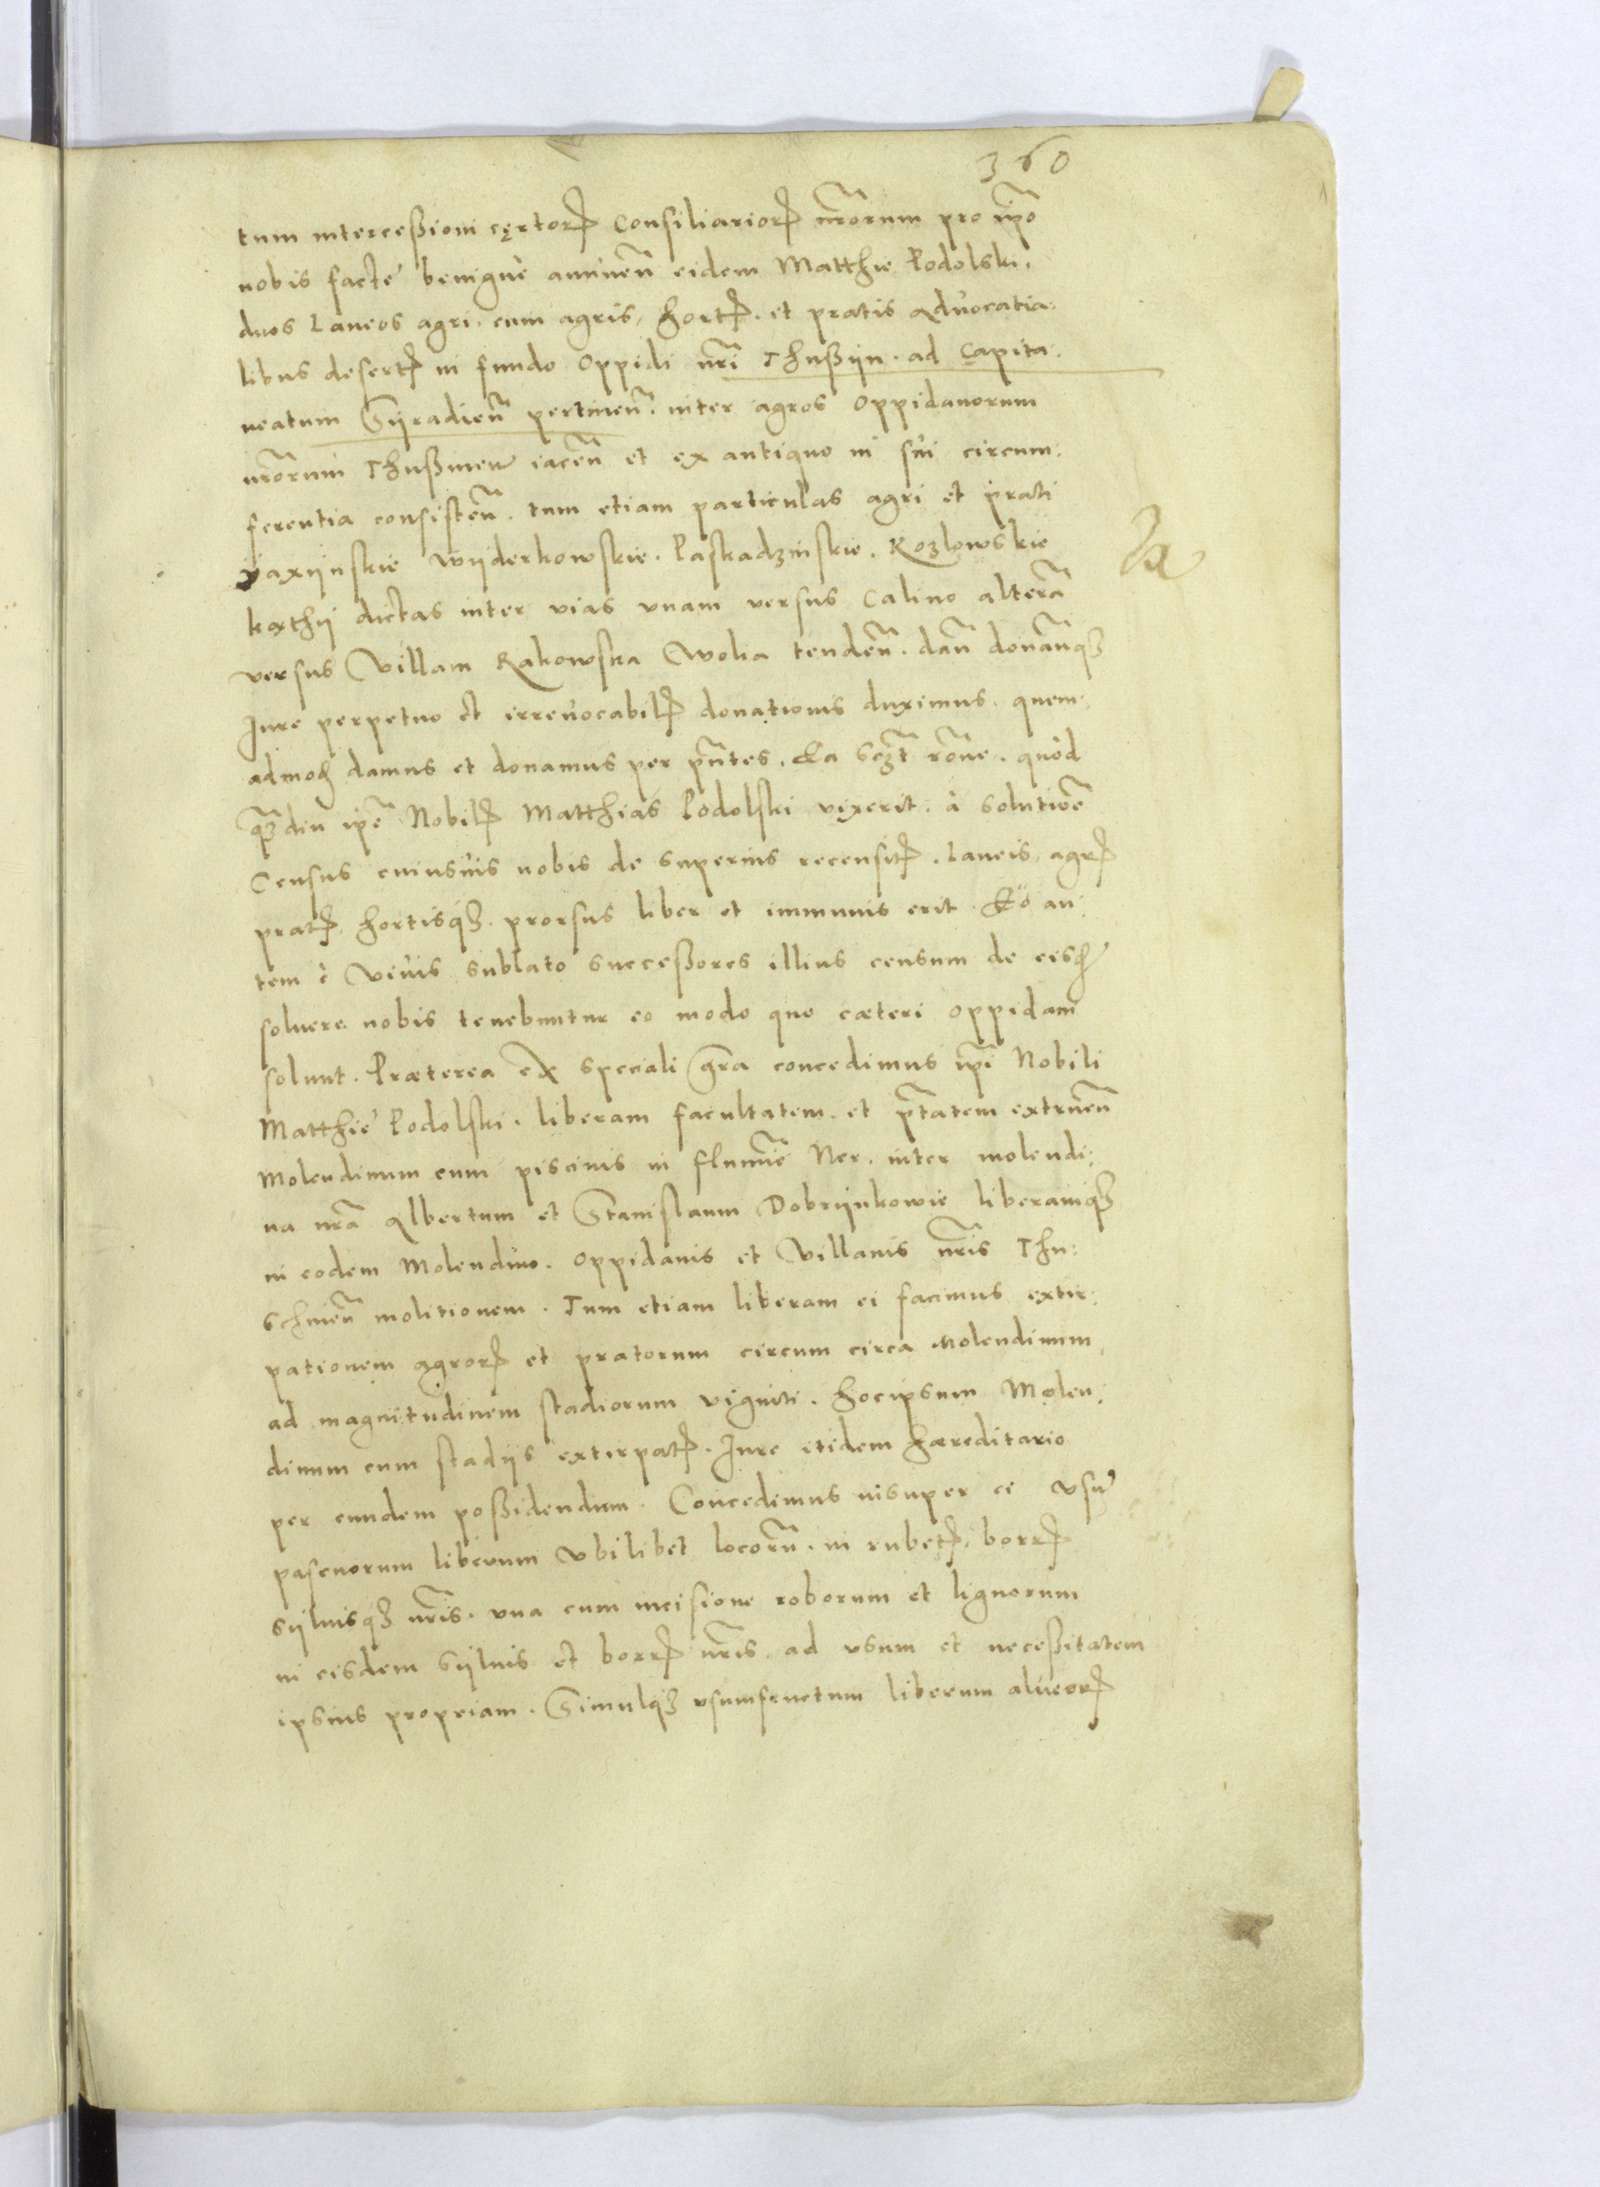 360
tum intercessioni certoꝝ Consiliarioꝝ nr̃orum pro ip̃o
nobis factę benignè annuen̄ eidem Matthie Podolski.
duos Laneos agri. cum agris, hortꝭ. et pratis advocatia:
libus desertꝭ in fundo Oppidi nr̃i Thussijn. ad Capita:
neatum Sijradien̄ pertinen̄. inter agros Oppidanorum
nr̃orum Thussinen̄ iacen̄ et ex antiquo in sui circum:
ferentia consisten̄. tum etiam particulas agri et prati
Jaxijnskie Wijderkowskie. Paskadzinskie. Kozlowskie
kąthij dictas inter vias vnam versus Calino alterã
versus Villam Rakowska Wola tenden̄. dan̄ donan̄qꝫ
Jure perpetuo et irreuocabilꝭ donationis duximus. quem:
admoḍ damus et donamus per pn̄tes. Ea scꝫt rõne. quòd
qꝫdiu ip̃e Nobilꝭ Matthias Podolski vixerit. à solutiõe
Census cuiusuis nobis de superius recensitꝭ. Laneis, agrꝭ
pratꝭ. hortisqꝫ. prorsus liber et immunis erit. Eo au:
tem è viuis sublato successores illius censum de eisd̃
soluere nobis tenebuntur eo modo quo cæteri Oppidani
soluunt. Præterea ex speciali gr̃a concedimus ip̃i Nobili
Matthię Podolski. liberam facultatem. et pt̃atem extruen̄
Molendinum cum piscinis in flumĩe Ner. inter molendi:
na nr̃a Albertum et Stanislaum Dobrijnkowie liberamqꝫ
in eodem Molendino. Oppidanis et Villanis nr̃is Thu:
schinen̄ molitionem. Tum etiam liberam ei facimus extir:
pationem agroꝝ et pratorum circum circa Molendinum,
ad magnitudinem stadiorum viginti. hocipsum Molen:
dinum cum stadijs extirpatꝭ. Jure itidem hæreditario
per eundem possidendum. Concedimus insuper ei vsum̃
pascuorum liberum vbilibet locorũ. in rubetꝭ, borrꝭ
sijluisqꝫ nr̃is. vna cum incisione roborum et lignorum
in eisdem sijluis et borrꝭ nr̃is. ad vsum et necessitatem
ipsius propriam. Simulqꝫ vsumfructum liberum alueoꝝ